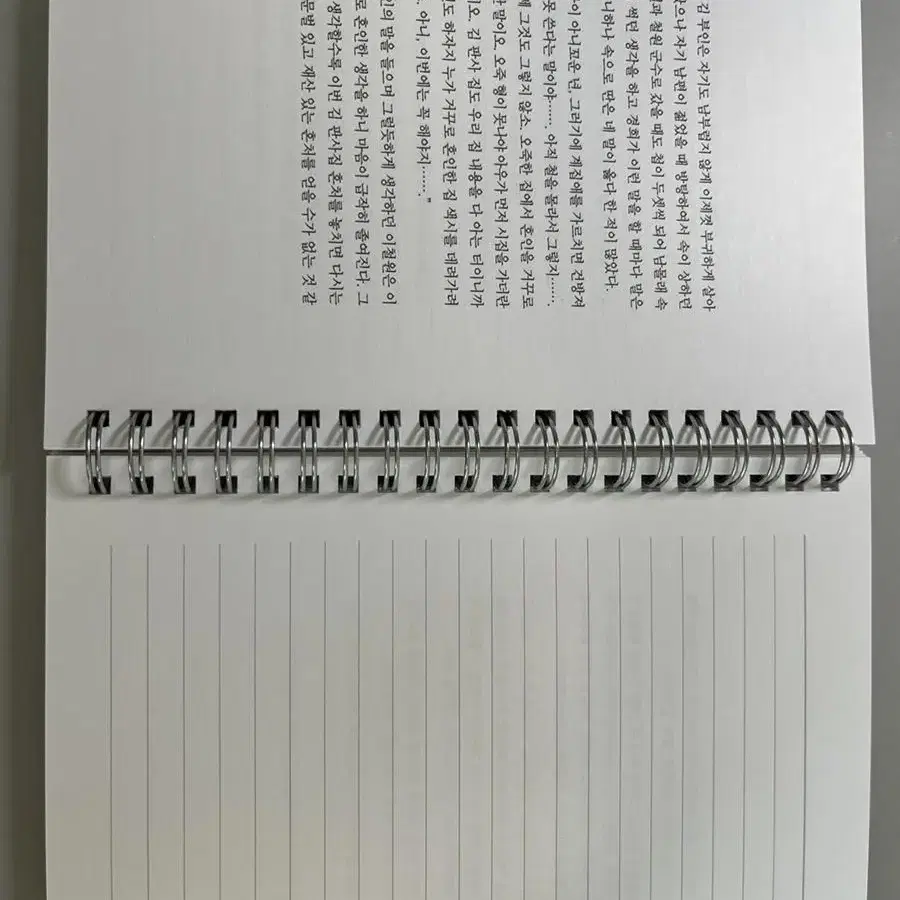 김 부인은 자기도 남부럽지 않게 이제껏 부귀하게 살아
았으나 자기 남편이 젊었을 때 방탕하여서 속이 상하던
과 철원 군수로 갔을 때도 첩이 두셋씩 되어 남몰래 속
썩던 생각을 하고 경희가 이런 말을 할 때마다 말은
니하나 속으로 딴은 네 말이 옳다 한 적이 많았다.
이 아니꼬운 년, 그러기에 계집애를 가르치면 건방져
못 쓴다는 말이야……. 아직 철을 몰라서 그렇지…….
에 그것도 그렇지 않소. 오죽한 집에서 혼인을 거꾸로
한 말이오. 오죽 형이 못나야 아우가 먼저 시집을 가더란
이오. 김 판사 집도 우리 집 내용을 다 아는 터이니까
도 하자지 누가 거꾸로 혼인한 집 색시를 데려가려
. 아니, 이번에는 꼭 해야지……."
인의 말을 들으며 그럴듯하게 생각하던 이철원은 이
로 혼인한 생각을 하니 마음이 급작히 졸여진다. 그
생각할수록 이번 김 판사집 혼처를 놓치면 다시는
문벌 있고 재산 있는 혼처를 얻을 수가 없는 것 같